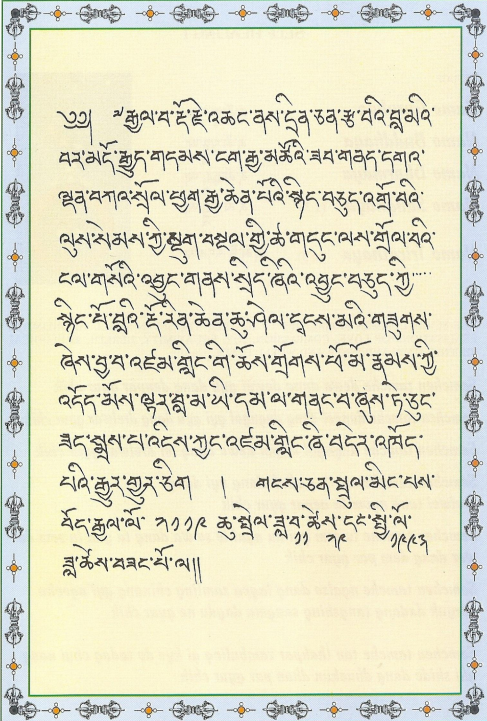 ༄༅། ༈ རྒྱལ་བ་རྡོ་རྗེ་འཆང་ནས་དྲིན་ཅན་རྩ་བའི་བླ་མའི་
བར་མདོ་རྒྱུད་གདམས་ངག་རྒྱ་མཚོའི་ཟབ་གནད་དགའ་
ལྡན་བཀའ་སྲོལ་ཕྱག་རྒྱ་ཆེན་པོའི་སྙིང་བཅུད་འགྲོ་བའི་
ལུས་སེམས་ཀྱི་སྡུག་བསྔལ་གྱི་ཚ་གདུང་ལས་གྲོལ་བའི་
ངལ་གསོའི་འབྱུང་གནས་སྲིད་ཞིའི་འབྱུང་བཅུད་ཀྱི་
སྙིང་པོ་བླའི་རྡོ་རིན་ཆེན་ཆུ་ཤེལ་དྭངས་མའི་གཟུགས་
ཞེས་བྱ་བ་འཛམ་གླིང་གི་ཆོས་གྲོགས་ཕོ་མོ་རྣམས་ཀྱི་
འདོད་མོས་ལྟར་བླ་མ་ཡི་དམ་ལ་གནང་བ་ཞུས་ཏེ་ཅུང་
ཟད་སྨྲས་པ་འདིས་ཀྱང་འཛམ་གླིང་ཞི་བདེར་འཁོད་
པའི་རྒྱུར་གྱུར་ཅིག གངས་ཅན་སྤྲུལ་མིང་པས་
བོད་རྒྱལ་ལོ་ ༢༡༡༩ ཆུ་སྤྲེལ་ཟླ་བ་ཆོས་དང་སྤྱི་ལོ་
༡༡ ༢༩ ༡༩༩༣
ཟླ་ཆོས་བཟང་པོ་ལ།།